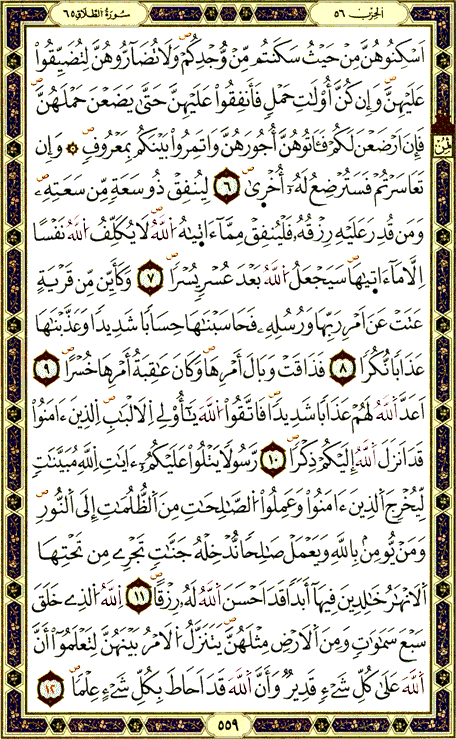 سُورَةُ الطَّلَاقِ ٦٥
الحِزْبُ ٥٦
اَسْكِنُوهُنَّ مِنْ حَيْثُ سَكَنتُم مِّنْ وُّجْدِكُمْ وَلَا تُضَآرُّوهُنَّ لِتُضَيِّقُواْ
عَلَيْهِنَّ وَإِن كُنَّ أُوْلَٰتِ حَمْلٍ فَأَنفِقُواْ عَلَيْهِنَّ حَتَّىٰ يَضَعْنَ حَمْلَهُنَّ
فَإِنَ اَرْضَعْنَ لَكُمْ فَـَٔاتُوهُنَّ أُجُورَهُنَّ وَاتَمِرُواْ بَيْنَكُم بِمَعْرُوفٍ وَإِن
ثمن
تَعَاسَرْتُمْ فَسَتُرْضِعُ لَهُۥ أُخْرَىٰ ٦ لِيُنفِقْ ذُو سَعَةٍ مِّن سَعَتِهِۦ
وَمَن قُدِرَ عَلَيْهِ رِزْقُهُۥ فَلْيُنفِقْ مِمَّآ ءَاتَىٰهُ اُللَّهُ لَا يُكَلِّفُ اُللَّهُ نَفْسًا
اِلَّا مَآ ءَاتَىٰهَا سَيَجْعَلُ اُللَّهُ بَعْدَ عُسْرٍ يُسْرًا ٧ وَكَأَيِّن مِّن قَرْيَةٍ
عَتَتْ عَنَ اَمْرِ رَبِّهَا وَرُسُلِهِۦ فَحَاسَبْنَٰهَا حِسَابًا شَدِيدًا وَعَذَّبْنَٰهَا
عَذَابًا نُّكُرًا ٨ فَذَاقَتْ وَبَالَ أَمْرِهَا وَكَانَ عَٰقِبَةُ أَمْرِهَا خُسْرًا ٩
اَعَدَّ اَللَّهُ لَهُمْ عَذَابًا شَدِيدًا فَاتَّقُواْ اُللَّهَ يَٰٓأُوْلِي اِلَالْبَٰبِ اِلَّذِينَ ءَامَنُواْ
قَدَ اَنزَلَ اَللَّهُ إِلَيْكُمْ ذِكْرًا ١٠ رَّسُولًا يَتْلُواْ عَلَيْكُمُۥٓ ءَايَٰتِ اِللَّهِ مُبَيَّنَٰتٍ
لِّيُخْرِجَ اَلذِينَ ءَامَنُواْ وَعَمِلُواْ اُلصَّٰلِحَٰتِ مِنَ اَلظُّلُمَٰتِ إِلَى اَلنُّورِ
وَمَنْ يُّومِنۢ بِاللَّهِ وَيَعْمَلْ صَٰلِحًا نُدْخِلْهُ جَنَّٰتٍ تَجْرِے مِن تَحْتِهَا
اَلَانْهَٰرُ خَٰلِدِينَ فِيهَآ أَبَدًا قَدَ اَحْسَنَ اَللَّهُ لَهُۥ رِزْقًا ١١ اِللَّهُ اُلذِے خَلَقَ
سَبْعَ سَمَٰوَٰتٍ وَمِنَ اَلَارْضِ مِثْلَهُنَّ يَتَنَزَّلُ اُلَامْرُ بَيْنَهُنَّ لِتَعْلَمُوٓاْ أَنَّ
اَللَّهَ عَلَىٰ كُلِّ شَےْءٍ قَدِيرٌ وَأَنَّ اَللَّهَ قَدَ اَحَاطَ بِكُلِّ شَےْءٍ عِلْمًا ١٢
٥٥٩